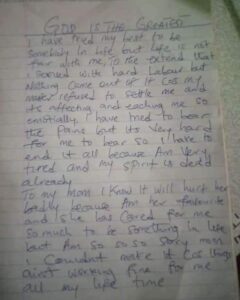 GOD IS THE GREATEST
I have tried my best to be
Somebody in life but life is not
fair with me, To the extend that
I served with hard Labour but
Nothing Came out of it Cos my
master refused to settle me and
its affecting and eaching me so
emotially. I have tried to bear
the pains but its Very hard
for me to bear so I have to
end it all because Am Very
tired and my spirit is dead
already
To my Mom I know It will hurt her
badly because Am her favourite
and She has Cared for me
so much to be something in life
but Am so so so Sorry mom
I Couldn't make it Cos things
ain't working fine for me
all my life time